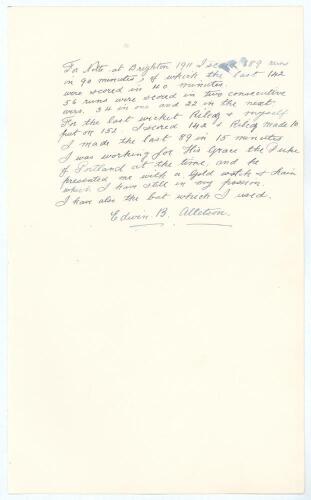 For Notts at Brighton 1911 I scored 189 runs
in 90 minutes, of which the last 142
were scored in 40 minutes.
56 runs were scored in two consecutive
overs. 34 in one and 22 in the next.
For the last wicket Riley & myself
put on 152. I scored 142 & Riley made 10.
I made the last 89 in 15 minutes
I was working for His Grace the Duke
of Portland at the time, and he
presented me with a Gold watch & chain
which I have still in my possession.
I have also the bat which I used.
Edwin. B. Alletson.